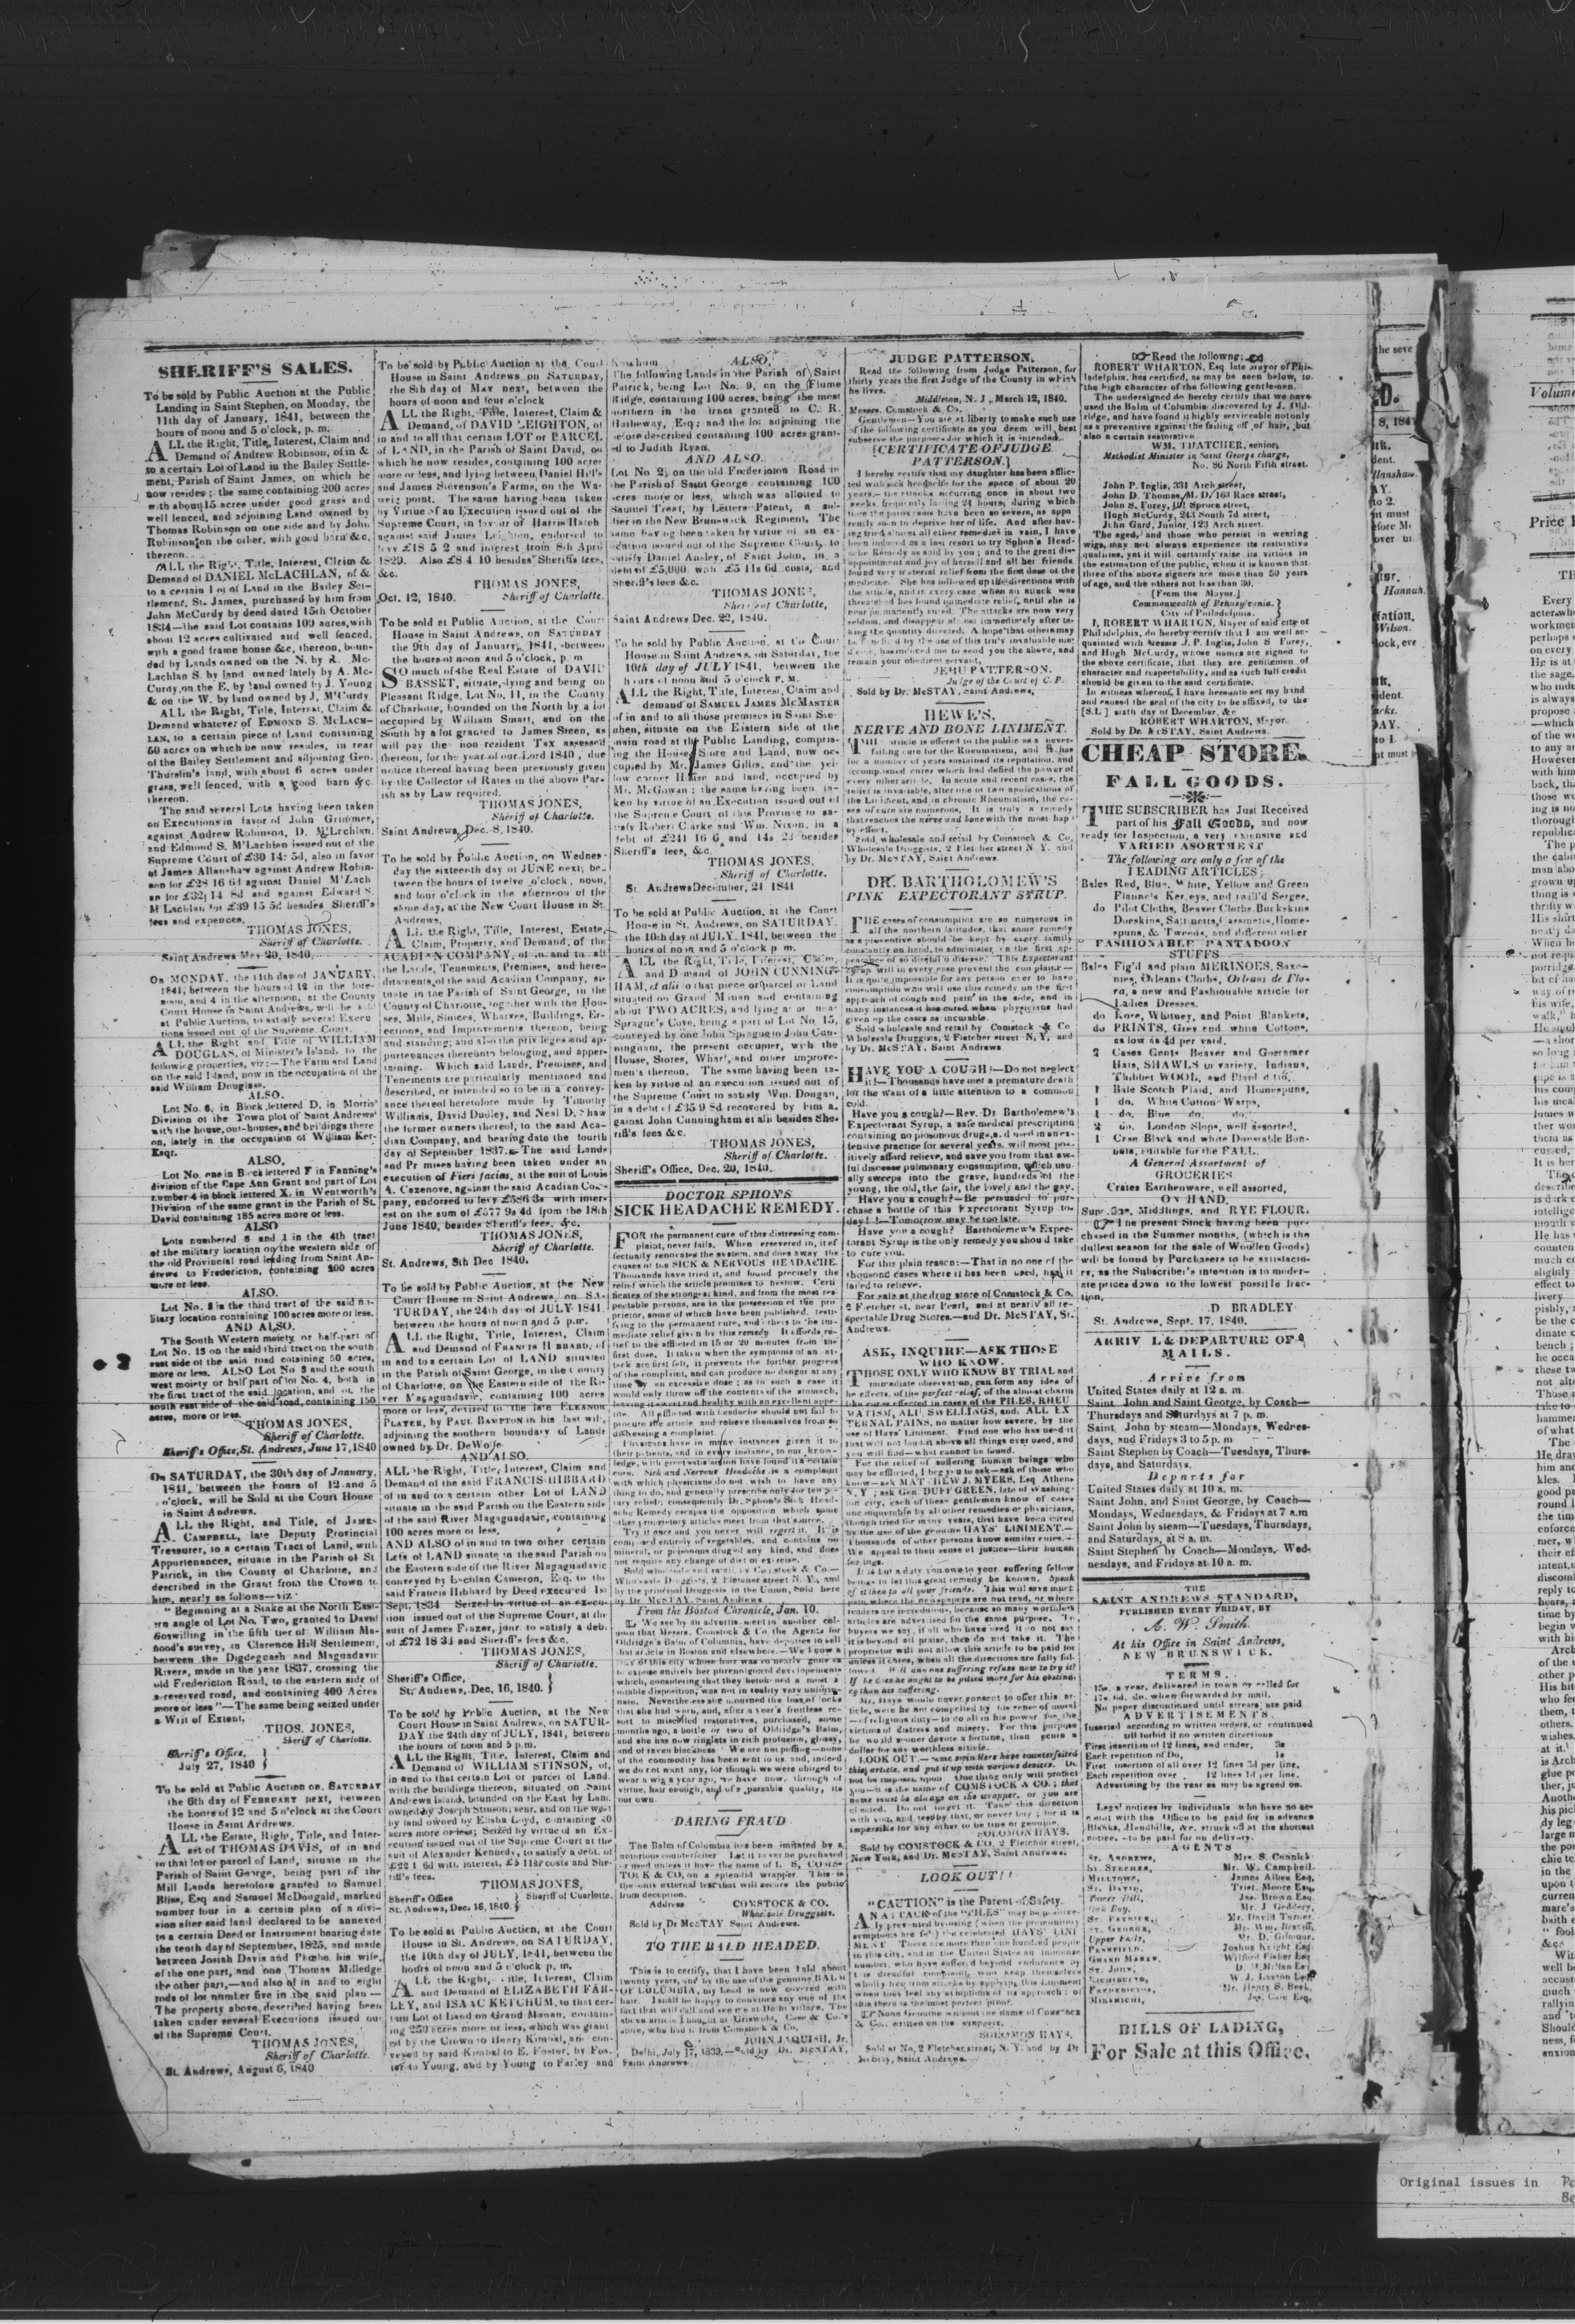 SHERIFF'S SALES.
To be sold by Public Auction at the Public
Landing in Saint Stephen, on Monday, the
11th day of January, 1841, between the
hours of noon and 5 o'clock, p. m.
ALL the Right, Title, Interest, Claim and
Demand of Andrew Robinson, of in &
to a certain Lot of Land in the Bailey Settle-
ment, Parish of Saint James, on which he
now resides; the same containing 200 acres
with about 15 acres under good grass and
well fenced, and adjoining Land owned by
Thomas Robinson on one side and by John
Robinson on the other, with good barn &c,
thereon.
ALL the Right, Title, Interest, Claim &
Demand of DANIEL McLACHLAN, of &
to a certain Lot of Land in the Bailey Set-
tlement, St. James, purchased by him from
John McCurdy by deed dated 15th October
1834—the said Lot contains 100 acres, with
about 12 acres cultivated and well fenced,
with a good frame house &c, thereon, boun-
ded by Lands owned on the N. by R. Mc-
Lachlan S. by land owned lately by A. Mc-
Curdy, on the E. by land owned by J. Young
& on the W. by land owned by J. M'Curdy
ALL the Right, Title, Interest, Claim &
Demand whatever of EDMOND S. McLACH-
LAN, to a certain piece of Land containing
60 acres on which he now resides, in rear
of the Bailey Settlement and adjoining Geo.
Thurslin's land, with about 6 acres under
grass, well fenced, with a good barn &c.
thereon.
The said several Lots having been taken
on Executions in favor of John Grimmer,
against Andrew Robinson, D. M'Lachlan,
and Edmond S. M'Lachlan issued out of the
Supreme Court of £30 14s 5d, also in favor
of James Allanshaw against Andrew Robin-
son for £28 16 6d against Daniel M'Lach
an for £32 14 8d and against Edward S.
M'Lachlan for £39 15 5d besides Sheriff's
fees and expences.
THOMAS JONES,
Sheriff of Charlotte.
Saint Andrews May 20, 1840.
On MONDAY, the 11th day of JANUARY,
1841, between the hours of 12 in the fore-
noon, and 4 in the afternoon, at the County
Court House in Saint Andrews, will be sold
at Public Auction, to satisfy several Execu
tions issued out of the Supreme Court.
ALL the Right and Title of WILLIAM
DOUGLAS, of Minister's Island, to the
following properties, viz:—The Farm and Land
on the said Island, now in the occupation of the
said William Douglass.
ALSO.
Lot No. 6, in Block lettered D, in Morris'
Division of the Town plot of Saint Andrews'
with the house, out-houses, and buildings there
on, lately in the occupation of William Ker-
Esqr.
ALSO,
Lot No. one in Block lettered F in Fanning's
division of the Cape Ann Grant and part of Lot
number 4 in block lettered X, in Wentworth's
Division of the same grant in the Parish of St.
David containing 185 acres more or less.
ALSO
Lots numbered 8 and 1 in the 4th tract
of the military location on the western side of
the old Provincial road leading from Saint An-
drews to Fredericton, containing 200 acres
more or less.
ALSO.
Lot No. 8 in the third tract of the said mi-
litary location containing 100 acres more or less.
AND ALSO.
The South Western moiety or half-part of
Lot No. 13 on the said third tract on the south
east side of the said road cotaining 50 acres,
more or less. ALSO Lot No 3 and the south
west moiety or half part of lot No. 4, both in
the first tract of the said location, and on the
south east side of the said road, containing 150
acres, more or less.
THOMAS JONES,
Sheriff of Charlotte.
Sheriff's Office, St. Andrews, June 17, 1840
On SATURDAY, the 30th day of January,
1841, between the hours of 12 and 5
o'clock, will be Sold at the Court House
in Saint Andrews.
ALL the Right, and Title, of JAMES
CAMPBELL, late Deputy Provincial
Treasurer, to a certain Tract of Land, with
Appurtenances, situate in the Parish of St
Patrick, in the County of Charlotte, and
described in the Grant from the Crown to
him, nearly as follows—viz
"Beginning at a Stake at the North East-
ern angle of Lot No. Two, granted to David
Goswilling in the fifth tier of William Ma-
hood's survey, in Clarence Hill Settlement,
between the Digdeguash and Maguadavic
Rivers, made in the year 1837, crossing the
old Fredericton Road, to the eastern side of
a reserved road, and containing 400 Acres
more or less"—The same being seized under
a Writ of Extent.
THOS. JONES,
Sheriff of Charlotte.
Sheriff's Office,
July 27, 1840
To be sold at Public Auction on, SATURDAY
the 6th day of FEBRUARY next, between
the hours of 12 and 5 o'clock at the Court
House in Saint Andrews.
ALL the Estate, Right, Title, and Inter-
est of THOMAS DAVIS, of in and
to that lot or parcel of Land, situate in the
Parish of Saint George, being part of the
Mill Lands heretofore granted to Samuel
Bliss, Esq and Samuel McDougald, marked
number four in a certain plan of a divi-
sion after said land declared to be annexed
to a certain Deed or Instrument bearing date
the tenth day of September, 1825, and made
between Josiah Davis and Phœbe his wife,
of the one part, and one Thomas Milledge
the other part,—and also of in and to eight
rods of lot number five in the said plan—
The property above described having been
taken under several Executions issued out
of the Supreme Court.
THOMAS JONES,
Sheriff of Charlotte.
St. Andrews, August 6, 1840
To be sold by Public Auction at the Court
House in Saint Andrews on SATURDAY,
the 8th day of MAY next, between the
hours of noon and four o'clock
ALL the Right, Title, Interest, Claim &
Demand, of DAVID LEIGHTON, of
in and to all that certain LOT or PARCEL
of LAND, in the Parish of Saint David, on
which he now resides, containing 100 acres
more or less, and lying between Daniel Hill's
and James Sorenson's Farms, on the Wa-
weig point. The same having been taken
by Virtue of an Execution issued out of the
Supreme Court, in favour of Harris Hatch
against said James Leighton, endorsed to
levy £18 5 2 and interest from 8th April
1829. Also £8 4 10 besides Sheriffs fees,
&c.
THOMAS JONES,
Oct. 12, 1840. Sheriff of Charlotte.
To be sold at Public Auction, at the Court
House in Saint Andrews, on SATURDAY
the 9th day of January, 1841, between
the hours of noon and 5 o'clock, p. m
SO much of the Real Estate of DAVID
BASSET, situate, lying and being on
Pleasant Ridge, Lot No. 11, in the County
of Charlotte, bounded on the North by a lot
occupied by William Smart, and on the
South by a lot granted to James Steen, as
will pay the non resident Tax assessed
thereon, for the year of our Lord 1840, due
notice thereof having been previously given
by the Collector of Rates in the above Par-
ish as by Law required.
THOMAS JONES,
Sheriff of Charlotte.
Saint Andrews, Dec. 8, 1840.
To be sold by Public Auction, on Wednes-
day the sixteenth day of JUNE next, be-
tween the hours of twelve o'clock, noon,
and four o'clock in the afternoon of the
same day, at the New Court House in St.
Andrews,
ALL the Right, Title, Interest, Estate,
Claim, Property, and Demand, of the
ACADIAN COMPANY, of in and to all
the Lands, Tenements, Premises, and here-
ditaments, of the said Acadian Company, si-
tuate in the Parish of Saint George, in the
County of Charlotte, together with the Hou-
ses, Mills, Sluices, Wharves, Buildings, Er-
ections, and Improvements thereon, being
and standing; and also the privileges and ap-
purtenances thereunto belonging, and apper-
taining. Which said Lands, Premises, and
Tenements are particularly mentioned and
described, or intended so to be in a convey-
ance thereof heretofore made by Timothy
Williams, David Dudley, and Neal D. Shaw
the former owners thereof, to the said Aca-
dian Company, and bearing date the fourth
day of September 1837. The said Lands
and Premises having been taken under an
execution of Fieri facias, at the suit of Louis
A. Cazenove, against the said Acadian Com-
pany, endorsed to levy £586 3s with inter-
est on the sum of £577 9s 4d from the 18th
June 1840, besides Sheriff's fees, &c.
THOMAS JONES,
Sheriff of Charlotte.
St. Andrews, 8th Dec 1840.
To be sold by Public Auction, at the New
Court House in Saint Andrews, on SA-
TURDAY, the 24th day of JULY 1841,
between the hours of noon and 5 p.m.
ALL the Right, Title, Interest, Claim
and Demand of FRANCIS HIBBARD, of
in and to a certain Lot of LAND situated
in the Parish of Saint George, in the County
of Charlotte, on the Eastern side of the Ri-
ver Magaguadavic, containing 100 acres
more or less, devised to the late ELEANOR
PLAYER, by PAUL BAMPTON in his last will,
adjoining the southern boundary of Lands
owned by Dr. DeWolfe
AND ALSO.
ALL the Right, Title, Interest, Claim and
Demand of the said FRANCIS HIBBARD
of in and to a certain other Lot of LAND
situate in the said Parish on the Eastern side
of the said River Magaguadavic, containing
100 acres more or less,
AND ALSO of in and to two other certain
Lots of LAND situate in the said Parish on
the Eastern side of the River Magaguadavic
conveyed by Lachlan Cameron, Esq. to the
said Francis Hibbard by Deed executed 1st
Sept. 1834 Seized by virtue of an execu-
tion issued out of the Supreme Court, at the
suit of James Frazer, junr. to satisfy a debt
of £72 18 3d and Sheriff's fees &c.
THOMAS JONES,
Sheriff of Charlotte.
Sheriff's Office,
St. Andrews, Dec, 16, 1840.
To be sold by Public Auction, at the New
Court House in Saint Andrews, on SATUR-
DAY the 24th day of JULY, 1841, between
the hours of noon and 5 p.m.
ALL the Right, Title, Interest, Claim and
Demand of WILLIAM STINSON, of,
in and to that certain Lot or parcel of Land,
with the buildings thereon, situated on Saint
Andrews Island, bounded on the East by Land
owned by Joseph Stinson, senr. and on the west
by land owned by Elisha Loyd, containing
acres more or less; Seized by virtue of an Ex-
ecution issued out of the Supreme Court at the
suit of Alexander Kennedy, to satisfy a debt, of
£22 1 6d with interest, £5 11s costs and She-
riff's fees.
THOMAS JONES,
Sheriff's Office Sheriff of Charlotte.
St. Andrews, Dec. 16, 1840.
To be sold at Public Auction, at the Court
House in St. Andrews, on SATURDAY,
the 10th day of JULY, 1841, between the
hours of noon and 5 o'clock p. m.
ALL the Right, Title, Interest, Claim
and Demand of ELIZABETH FAR-
LEY, and ISAAC KETCHUM, to that cer-
tain Lot of Land on Grand Manan, contain-
ing 250 acres more or less, which was grant
ed by the Crown to Henry Kimbal, and con-
veyed by said Kimbal to E. Foster, by Fos-
ter to Young, and by Young to Farley and
Ketchum
ALSO,
The following Lands in the Parish of Saint
Patrick, being Lot No. 9, on the Flume
Ridge, containing 100 acres, being the most
northern in the tract granted to C. R.
Hatheway, Esq; and the lot adjoining the
before described containing 100 acres grant-
ed to Judith Ryan.
AND ALSO.
Lot No 2, on the old Fredericton Road in
the Parish of Saint George containing 100
acres more or less, which was allotted to
Samuel Treat, by Letters Patent, a sol-
dier in the New Brunswick Regiment, The
same having been taken by virtue of an ex-
ecution issued out of the Supreme Court, to
satisfy Daniel Ansley, of Saint John, in a
debt of £5,000 with £5 11s 6d costs, and
Sheriff's fees &c.
THOMAS JONES,
Sheriff of Charlotte,
Saint Andrews Dec. 22, 1840.
To be sold by Public Auction, at the Court
House in Saint Andrews, on Saturday, the
10th day of JULY 1841, between the
hours of noon and 5 o'clock P. M.
ALL the Right, Title, Interest, Claim and
demand of SAMUEL JAMES McMASTER
of in and to all those premises in Saint Ste-
phen, situate on the Eastern side of the
main road at the Public Landing, compris-
ing the House, Store and Land, now oc-
cupied by Mr. James Gillis, and the yel-
low corner House and land, occupied by
Mr. McGowan; the same having been ta-
ken by virtue of an Execution issued out of
the Supreme Court of this Province to sa-
tisfy Robert Clarke and Wm. Nixon, in a
debt of £241 16 6, and 14s 2d besides
Sheriff's fees, &c.
THOMAS JONES,
Sheriff of Charlotte.
St. Andrews December, 21 1841
To be sold at Public Auction, at the Court
House in St. Andrews, on SATURDAY,
the 10th day of JULY, 1841, between the
hours of noon and 5 o'clock p m.
ALL the Right, Title, Interest, Claim,
and Demand of JOHN CUNNING-
HAM, et alii to that piece or parcel of Land
situated on Grand Manan and containing
about TWO ACRES, and lying at or near
Sprague's Cove, being a part of Lot No. 15,
conveyed by one John Sprague to John Cun-
ningham, the present occupier, with the
House, Stores, Wharf, and other improve-
men's thereon. The same having been ta-
ken by virtue of an execution issued out of
the Supreme Court to satisfy Wm. Dougan,
in a debt of £35 9 8d recovered by him a-
gainst John Cunningham et alii besides She-
riff's fees &c.
THOMAS JONES,
Sheriff of Charlotte.
Sheriff's Office, Dec. 20, 1840.
DOCTOR SPHON'S
SICK HEADACHE REMEDY.
FOR the permanent cure of this distressing com-
plaint, never fails. When persevered in, it ef
fectually renovates the system, and does away the
causes of the SICK & NERVOUS HEADACHE.
Thousands have tried it, and found precisely the
relief which the article promises to bestow. Certi
ficates of the strongest kind, and from the most res-
pectable persons, are in the possession of the pro
prietor, some of which have been published, testi-
fying to the permanent cure, and others to the im-
mediate relief given by this remedy. It affords re-
lief to the afflicted in 15 or 20 minutes from the
first dose. If taken when the symptoms of an at-
tack are first felt, it prevents the further progress
of the complaint, and can produce no danger at any
time by an excessive dose; as in such a case it
would only throw off the contents of the stomach,
leaving it sweet and healthy with an excellent appe-
tite. All afflicted with headache should not fail to
procure the article and relieve themselves from so
distressing a complaint.
Physicians have in many instances given it to
their patients, and in every instance, to our know-
ledge, with great satisfaction have found it a certain
cure. Sick and Nervous Headache is a complaint
with which physicians do not wish to have any
thing to do, and generally prescribe only for tempo-
rary relief; consequently Dr. Sphon's Sick Head-
ache Remedy escapes the opposition which some
other proprietary articles meet from that source.
Try it once and you never will regret it. It is
composed entirely of vegetables, and contains no
mineral, or poisonous drug of any kind, and does
not require any change of diet or exercise.
Sold wholesale and retail by Comstock & Co.—
Wholesale Druggists, 2 Fletcher street N. Y., and
by the principal Druggists in the Union, Sold here
by Dr. McSTAY, Saint Andrews.
From the Boston Chronicle, Jan. 10.
We see by an advertisement in another col-
umn that Messrs. Comstock & Co, the Agents for
Oldridge's Balm of Columbia, have deputies to sell
that article in Boston and elsewhere.—We know a
lady of this city whose hair was so nearly gone as
to expose entirely her phrenological developements
which, considering that they betokened a most a
miable disposition, was not in reality very unfortu-
nate. Nevertheless she mourned the loss of locks
that she had worn, and, after a year's fruitless re-
sort to miscalled restoratives, purchased, some
months ago, a bottle or two of Oldridge's Balm,
and she has now ringlets in rich profusion, glossy,
and of raven blackness. We are not puffing—none
of the commodity has been sent to us, and, indeed
we do not want any, for though we were obliged to
wear a wig a year ago, we have now, through of
virtue, hair enough, and of a passable quality, its
our own.
DARING FRAUD
The Balm of Columbia has been imitated by a
notorious counterfeiter. Let it never be purchased
or used unless it have the name of L. S. COMS-
TOCK & CO, on a splendid wrapper. This is
the only external test that will secure the public
from deception.
Address COMSTOCK & CO.
Wholesale Druggists.
Sold by Dr McSTAY Saint Andrews.
TO THE BALD HEADED.
This is to certify, that I have been bald about
twenty years, and by the use of the genuine BALM
OF COLUMBIA, my head is now covered with
hair. I shall be happy to convince any one of the
fact that will call and see me at Delhi village. The
above article I bought at Griswold, Case & Co.'s
store, who had it from Comstock & Co.
JOHN JAQUISH, Jr.
Delhi, July 17, 1839.—Sold by Dr. McSTAY,
Saint Andrews
JUDGE PATTERSON.
Read the following from Judge Patterson, for
thirty years the first Judge of the County in which
he lives.
Middleton, N. J., March 12, 1840.
Messrs. Comstock & Co.
Gentlemen—You are at liberty to make such use
of the following certificate as you deem will best
subserve the purposes for which it is intended.
[CERTIFICATE OF JUDGE
PATTERSON.]
I hereby certify that my daughter has been afflic-
ted with sick headache for the space of about 20
years,—the attacks occurring once in about two
weeks, frequently lasting 24 hours, during which
time the paroxysms have been so severe, as appa
rently soon to deprive her of life. And after hav-
ing tried almost all other remedies in vain, I have
been induced as a last resort to try Sphon's Head-
ache Remedy as sold by you; and to the great dis-
appointment and joy of herself and all her friends,
found very material relief from the first dose of the
medicine. She has followed up the directions with
the article, and in every case when an attack was
threatened has found immediate relief, until she is
now permanently cured. The attacks are now very
seldom, and disappear almost immediately after ta-
king the quantity directed. A hope that others may
be benefited by the use of this truly invaluable me-
dicine, has induced me to send you the above, and
remain your obedient servant,
JEHU PATTERSON.
Judge of the Court of C. P.
Sold by Dr. McSTAY, Saint Andrews,
HEWE'S.
NERVE AND BONE LINIMENT.
THIS article is offered to the public as a never-
failing cure for the Rheumatism, and it has
for a number of years sustained its reputation, and
accomplished cures which had defied the power of
every other article. In acute and recent cases, the
relief is invariable, after one or two applications of
the Liniment, and in chronic Rheumatism, the ca-
ses of cure are numerous. It is truly a remedy
that reaches the nerve and bone with the most hap
py effect.
Sold, wholesale and retail by Comstock & Co,
Wholesale Druggists, 2 Fletcher street N. Y. and
by Dr. McSTAY, Saint Andrews.
DR. BARTHOLOMEW'S
PINK EXPECTORANT SYRUP.
THE cases of consumption are so numerous in
all the northern latitudes, that some remedy
as a preventive should be kept by every family
constantly on hand, to administer on the first ap-
pearance of so direful a disease. This Expectorant
Syrup will in every case prevent the complaint.—
It is quite impossible for any person ever to have
consumption who will use this remedy on the first
approach of cough and pain in the side, and in
many instances it has cured when physicians had
given up the cases as incurable.
Sold wholesale and retail by Comstock & Co
Wholesale Druggists, 2 Fletcher street N. Y, and
by Dr. McSTAY. Saint Andrews.
HAVE YOU A COUGH?—Do not neglect
it!—Thousands have met a premature death
for the want of a little attention to a common
cold.
Have you a cough?—Rev. Dr Bartholemew's
Expectorant Syrup, a safe medical prescription
containing no poisonous drugs, and used in an ex-
tensive practice for several years, will most pos-
itively afford relieve, and save you from that aw-
ful disease pulmonary consumption, which usu-
ally sweeps into the grave, hundreds of the
young, the old, the fair, the lovely and the gay.
Have you a cough?—Be persuaded to pur-
chase a bottle of this Expectorant Syrup to-
day!—Tomorrow may be too late.
Have you a cough? Bartholemew's Expec-
torant Syrup is the only remedy you should take
to cure you.
For this plain reason:—That in no one of the
thousand cases where it has been used, has it
failed to relieve.
For sale at the drug store of Comstock & Co.
2 Fletcher st. near Pearl, and at nearly all re-
spectable Drug Stores.—and Dr. McSTAY, St.
Andrews.
ASK, INQUIRE—ASK THOSE
WHO KNOW.
THOSE ONLY WHO KNOW BY TRIAL and
immediate observation, can form any idea of
the effects, of the perfect relief, of the almost charm
like cures effected in cases of the PILES, RHEU
MATISM, ALL SWELLINGS, and, ALL EX
TERNAL PAINS, no matter how severe, by the
use of Hays' Liniment. Find one who has used it
that will not laud it above all things ever used, and
you will find—what cannot be found.
For the relief of suffering human beings who
may be afflicted, I beg you to ask—ask of those who
know—ask MATTHEW J. MYERS, Esq. Athens
N. Y; ask Gen. DUFF GREEN, late of Washing-
ton city, each of these gentlemen know of cases
unconquerable by all other remedies or physicians,
though tried for many years, that have been cured
by the use of the genuine HAYS' LINIMENT.—
Thousands of other persons know similar cures.—
We appeal to their sense of justice—their human
feelings.
It is but a duty you owe to your suffering fellow
beings to let this great remedy be known. Speak
of it then to all your friends. This will save much
pain where the newspapers are not read, or where
readers are incredulous, because so many worthless
articles are advertised for the same purpose. To
buyers we say, if all who have used it do not say
it is beyond all praise, then do not take it. The
proprietor will not allow this article to be paid for
unless it cures, when all the directions are fully fol-
lowed. Will any one suffering refuse now to try it?
If he does he ought to be pitied more for his obstina-
cy than his suffering.
Mr. Hays would never consent to offer this ar-
ticle, were he not compelled by his sense of moral
—of religious duty—to do all in his power for the
victims of distress and misery. For this purpose
he would sooner devote a fortune, than secure a
dollar for any worthless article.
LOOK OUT.—Some swindlers have counterfeited
this article, and put it up with various devices. Do
not be imposed upon. One thing only will protect
you—it is the name of COMSTOCK & CO.; that
name must be always on the wrapper, or you are
cheated. Do not forget it. Take this direction
with you, and test by that, or never buy; for it is
impossible for any other to be true or genuine.
SOLOMON HAYS.
Sold by COMSTOCK & CO. 2 Fletcher street,
New York, and Dr. McSTAY, Saint Andrews.
LOOK OUT!!
"CAUTION" is the Parent of Safety.
AN ATTACK of the "PILES" may be positive-
ly prevented by using (when the premonitory
symptoms are felt) the celebrated HAYS' LINI
MENT. There are more than one hundred people
in this city, and in the United States an immense
number, who have suffered beyond endurance by
this dreadful complaint, who keep themselves
wholly free from attacks by applying this Liniment
when they feel any symptoms of its approach: of
this there is the most perfect proof.
None Genuine without the name of COMSTOCK
& Co. written on the wrapper.
SOLOMON HAYS.
Sold at No, 2 Fletcher street, N. Y. and by Dr
McStay, Saint Andrews.
Read the followng:
ROBERT WHARTON, Esq. late Mayor of Phi-
ladelphia, has certified, as may be seen below, to
the high character of the following gentlemen.
The undersigned do hereby certify that we have
used the Balm of Columbia discovered by J. Old-
ridge, and have found it highly serviceable not only
as a preventive against the falling off of hair, but
also a certain restorative.
WM. THATCHER, senior,
Methodist Minister in Saint George charge,
No. 86 North Fifth street.
John P. Inglis, 331 Arch street,
John D. Thomas, M. D. 163 Race street,
John S. Furey, 101 Spruce street,
Hugh McCurdy, 243 South 7d street,
John Gard, Junior, 123 Arch street.
The aged, and those who persist in wearing
wigs, may not always experience its restorative
qualities, yet it will certainly raise its virtues in
the estimation of the public, when it is known that
three of the above signers are more than 50 years
of age, and the others not less than 30.
[From the Mayor.]
Commonwealth of Pennsylvania.
City of Philadelphia.
I, ROBERT WHARTON, Mayor of said city of
Philadelphia, do hereby certify that I am well ac-
quainted with Messrs J. P. Inglis, John S. Furey,
and Hugh McCurdy, whose names are signed to
the above certificate, that they are gentlemen of
character and respectability, and as such full credit
should be given to the said certificate.
In witness whereof, I have hereunto set my hand
and caused the seal of the city to be affixed, to the
[S.L.] sixth day of December, &c
ROBERT WHARTON, Mayor.
Sold by Dr. McSTAY, Saint Andrews.
CHEAP STORE.
FALL GOODS.
THE SUBSCRIBER has Just Received
part of his Fall Goods, and now
ready for Inspection, a very extensive and
VARIED ASORTMENT
The following are only a few of the
LEADING ARTICLES;
Bales Red, Blue, White, Yellow and Green
Flannels Kerseys, and twill'd Serges,
do Pilot Cloths, Beaver Cloths Buckskins
Doeskins, Sattinetts, Cassinetts, Home-
spuns, & Tweeds, and different other
FASHIONABLE PANTALOON
STUFFS
Bales Fig'd and plain MERINOES, Saxo-
nies, Orleans Cloths, Orleans de Flo-
ra, a new and Fashionable article for
Ladies Dresses.
do Rose, Whitney, and Point Blankets,
do PRINTS, Grey and white Cottons,
as low as 4d per yard.
2 Cases Gents Beaver and Gossamer
Hats, SHAWLS in variety, Indiana,
Thibbet WOOL, and Plaid ditto,
1 Bale Scotch Plaid, and Homespuns,
1 do. White Cotton Warps,
1 do. Blue do. do.
2 do. London Slops, well assorted,
1 Case Black and white Dunstable Bon-
nets, suitable for the FALL.
A General Assortment of
GROCERIES
Crates Earthenware, well assorted,
ON HAND,
Superfine, Middlings, and RYE FLOUR.
The present Stock having been pur-
chased in the Summer months, (which is the
dullest season for the sale of Woollen Goods)
will be found by Purchasers to be satisfacto-
ry, as the Subscriber's intention is to moder-
ate prices down to the lowest possible frac-
tion,
D BRADLEY
St. Andrews, Sept. 17, 1840.
ARRIV L & DEPARTURE OF
MAILS.
Arrive from
United States daily at 12 a. m.
Saint John and Saint George, by Coach—
Thursdays and Saturdays at 7 p. m.
Saint John by steam—Mondays, Wednes-
days, and Fridays 3 to 5 p. m
Saint Stephen by Coach—Tuesdays, Thurs-
days, and Saturdays.
Departs for
United States daily at 10 a. m.
Saint John, and Saint George, by Coach—
Mondays, Wednesdays, & Fridays at 7 a.m
Saint John by steam—Tuesdays, Thursdays,
and Saturdays, at 8 a. m.
Saint Stephen by Coach—Mondays, Wed-
nesdays, and Fridays at 10 a. m.
THE
SAINT ANDREWS STANDARD,
PUBLISHED EVERY FRIDAY, BY
A. W. Smith.
At his Office in Saint Andrews,
NEW BRUNSWICK.
TERMS.
15s. a year, delivered in town or called for
17s. 6d. do. when forwarded by mail.
No paper discontinued until arrears are paid
ADVERTISEMENTS.
Inserted according to written orders, or continued
till forbid if no written directions
First insertion of 12 lines, and under, 3s
Each repetition of Do, 1s
First insertion of all over 12 lines 3d per line,
Each repetition over 12 lines 1d per line.
Advertising by the year as may be agreed on.
Legal notices by individuals who have no ac-
count with the Office to be paid for in advance
Blanks, Handbills, &c. struck off at the shortest
notice,—to be paid for on delivery.
AGENTS
ST. ANDREWS, Mrs. S. Connick
ST. STEPHEN, Mr. W. Campbell.
MILLTOWN, James Albee Esq,
ST. DAVID, Trist. Moore Esq.
Tower Hill, Jas. Brown Esq.
Oak Bay, Mr. J Geddery,
ST. PATRICK, Mr. David Turner,
ST. GEORGE, Mr. Wm. Bratiff,
Upper Falls, Mr. D. Gilmour.
PENNFIELD, Joshua Knight Esq.
GRAND MANAN, Wilford Fisher Esq
ST. JOHN, D. M'Millan Esq
RICHIBUCTO, W. J. Layton Esq
FREDERICTON, Mr. Henry S. Beek,
MIRAMICHI, Jas. Caie Esq.
BILLS OF LADING,
For Sale at this Office.
Original issues in